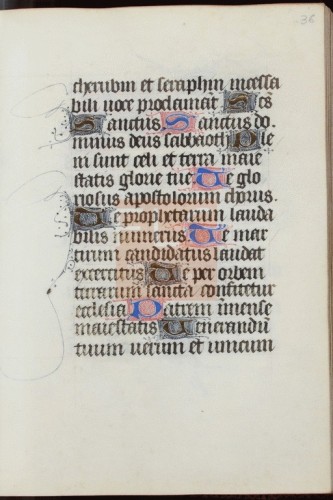 36
cherubin et seraphin incessa
bili uoce proclamāt Scs̄
Sanctus Sanctus do
minus deus sabbaoth Ple
ni sunt celi et terra maie
statis glorie tue Te glo
riosus apostolorum chorus.
Te prophetarum lauda
bilis numerus Te mar
tirum candidatus laudat
exercitus Te per orbem
terrarum sancta confitetur
ecclesia Patrem īmense
maiestatis Uenerandū
tuum uerum et unicum